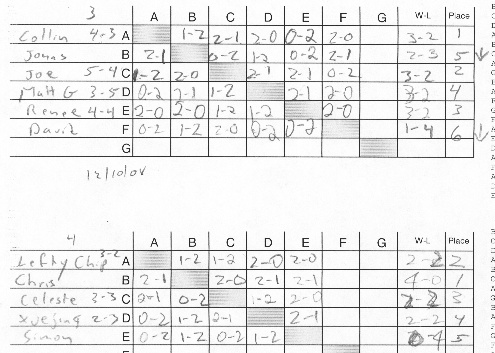 3 A B C D E F G W-L Place
Collin 4-3 A 1-2 2-1 2-0 0-2 2-0 3-2 1
Jonas B 2-1 0-2 1-2 0-2 2-1 2-3 5
Joe 5-4 C 1-2 2-0 2-1 2-1 0-2 3-2 2
Matt G 3-5 D 0-2 2-1 1-2 2-1 2-0 3-2 4
Renee 4-4 E 2-0 2-0 1-2 1-2 2-0 3-2 3
David F 0-2 1-2 2-0 0-2 0-2 1-4 6
G
12/10/08
4 A B C D E F G W-L Place
Lefty Chip 3-2 A 1-2 1-2 2-0 2-0 2-2 2
Chris B 2-1 2-0 2-1 2-1 4-0 1
Celeste 3-3 C 2-1 0-2 1-2 2-0 2-2 3
Xuejing 2-3 D 0-2 1-2 2-1 2-1 2-2 4
Simon E 0-2 1-2 0-2 1-2 0-4 5